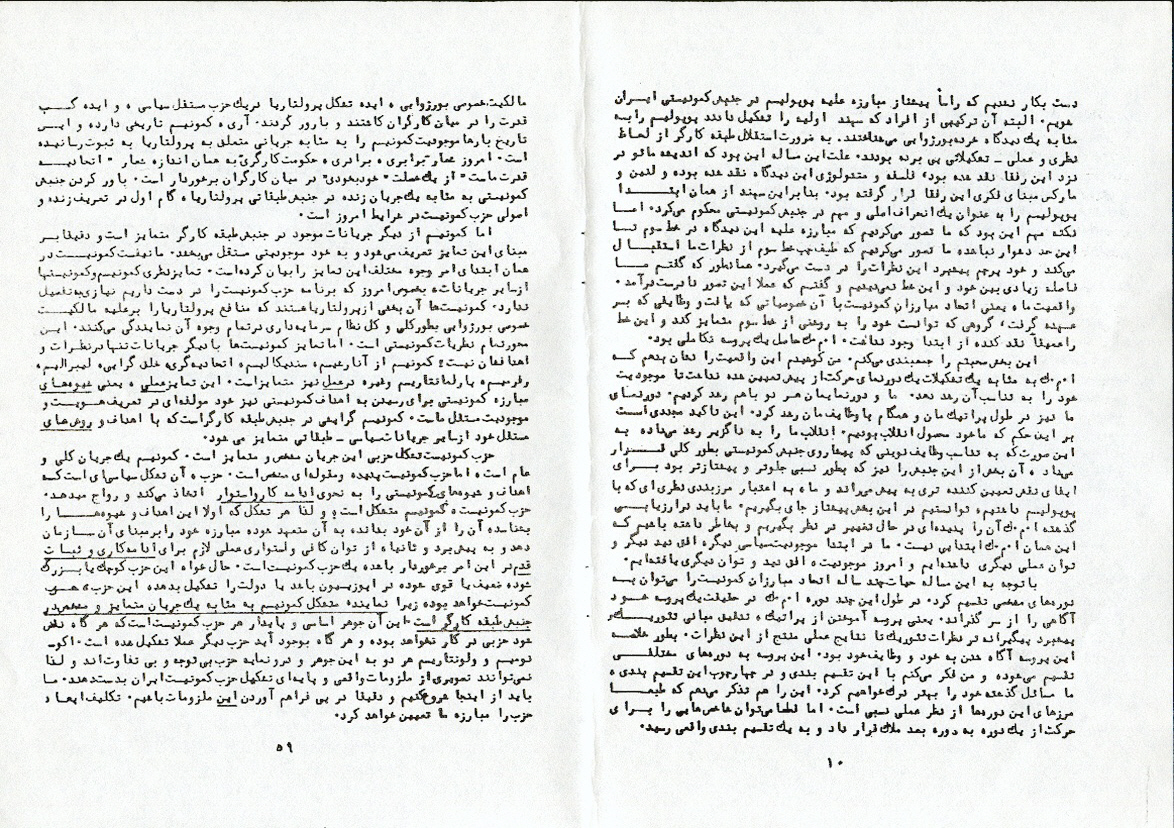 دست بکار شدیم که راسا پیشتاز مبارزه علیه پوپولیسم در جنبش کمونیستی ایران
شویم. البته آن ترکیبی از افراد که سهند اولیه را تشکیل دادند پوپولیسم را به
مثابه یک دیدگاه خرده بورژوایی می‌شناختند. به ضرورت استقلال طبقه کارگر از لحاظ
نظری و عملی - تشکیلاتی پی برده بودند. علت این ساله این بود که اندیشه مائو در
نزد این رفقا نقد شده بود، فلسفه و متدولوژی این دیدگاه نقد شده بوده و لنین و
مارکس مبنای فکری این رفقا قرار گرفته بود. بنابراین سهند از همان ابتدا
پوپولیسم را به عنوان یک انحراف اصلی و مهم در جنبش کمونیستی محکوم می‌کرد. اما
نکته مهم این بود که ما تصور می‌کردیم که مبارزه علیه این دیدگاه در خط سوم تا
این حد دشوار نباشد، ما تصور می‌کردیم که طیف چپ خط سوم از نظرات ما استقبال
می‌کند و خود پرچم پیشبرد این نظرات را در دست می‌گیرد. همانطور که گفتم ما
فاصله زیادی بین خود و این خط نمی‌دیدیم و گفتم که عملا این تصور نادرست درآمد.
واقعیت ما، یعنی اتحاد مبارزان کمونیست با آن خصوصیاتی که یافت و وظایفی که بر
عهده گرفت، گروهی که توانست خود را به روشنی از خط سوم متمایز کند و این خط
را عمیقا نقد کند، از ابتدا وجود نداشت. ا.م.ک حاصل یک پروسه تکاملی بود.
این بخش صحبتم را جمعبندی می‌کنم. من کوشیدم این واقعیت را نشان بدهم که
ا.م.ک به مثابه یک تشکیلات یک دورنمای حرکت از پیش تعیین شده نداشت تا موجودیت
خود را به تناسب آن رشد دهد. ما و دورنمایمان هر دو باهم رشد کردیم. دورنمای
ما نیز در طول پراتیک‌مان و همگام با وظایفمان رشد کرد. این تاکید مجددی است
بر این حکم که ما خود محصول انقلاب بودیم. انقلاب ما را به ناگزیر رشد می‌داد، به
این صورت که به تناسب وظایف نوینی که پیشاروی جنبش کمونیستی بطور کلی قرار
می‌داد، آن بخش از این جنبش را نیز که بطور نسبی جلوتر و پیشتازتر بود برای
ایفای نقش تعیین کننده تری به پیش می‌راند و ما، به اعتبار مرزبندی نظری ای که با
پوپولیسم داشتیم، توانستیم در این بخش پیشتاز جای بگیریم. ما باید در ارزیابی
گذشته ا.م.ک آن را پدیده‌ای در حال تغییر در نظر بگیریم و بخاطر داشته باشیم که
این همان ا.م.ک ابتدایی نیست. ما در ابتدا موجودیت سیاسی دیگر، افق دید دیگر و
توان عملی دیگری داشته‌ایم و امروز موجودیت، افق دید و توان دیگری یافته‌ایم.
با توجه به این ساله حیات چند ساله اتحاد مبارزان کمونیست را می‌توان به
دوره‌های مشخصی تقسیم کرد. در طول این چند دوره ا.م.ک در حقیقت یک پروسه خود
آگاهی را از سر گذراند. یعنی پروسه آموختن از پراتیک، تدقیق مبانی تئوریک،
پیشبرد پیگیرانه تر نظرات تئوریک تا نتایج عملی منتج از این نظرات. بطور خلاصه
این پروسه آگاه شدن به خود و وظایف خود بود. این پروسه به دوره‌های مختلفی
تقسیم می‌شود، و من فکر می‌کنم با این تقسیم بندی و در چهارچوب این تقسیم بندی،
ما مسائل گذشته خود را بهتر درک خواهیم کرد. این را هم تذکر می‌دهم که طبعا
مرزهای این دوره‌ها از نظر عملی نسبی است. اما قطعا می‌توان شاخص‌هایی را برای
حرکت از یک دوره به دوره بعد ملاک قرار داد و به یک تقسیم بندی واقعی رسید.
۱۰
مالکیت خصوصی بورژوایی، ایده تشکل پرولتاریا در یک حزب مستقل سیاسی، و ایده کسب
قدرت را در میان کارگران کاشتند و بارور کردند. آری، کمونیسم تاریخی دارد، و این
تاریخ بارها موجودیت کمونیسم را به مثابه جریانی متعلق به پرولتاریا به ثبوت رسانیده
است. امروز شعار "برابری، برادری، حکومت کارگری" به همان اندازه شعار "اتحادیه
قدرت ماست" از یک عملت "خودبخودی" در میان کارگران برخوردار است. باور کردن جنبش
کمونیستی به مثابه یک جریان زنده در جنبش طبقاتی پرولتاریا، گام اول در تعریف زنده و
اصولی حزب کمونیست در شرایط امروز است.
اما کمونیسم از دیگر جریانات موجود در جنبش طبقه کارگر متمایز است و دقیقا بر
مبنای این تمایز تعریف می‌شود و به خود موجودیتی مستقل می‌بخشد. مانیفست کمونیست در
همان ابتدای امر وجوه مختلف این تمایز را بیان کرده است. تمایز نظری کمونیسم و کمونیستها
از سایر جریانات، بخصوص امروز که برنامه حزب کمونیست را در دست داریم نیازی به تفصیل
ندارد. کمونیست‌ها آن بخشی از پرولتاریا هستند که منافع پرولتاریا را بر علیه مالکیت
خصوصی بورژوایی بطور کلی و کل نظام سرمایه‌داری در تمام وجوه آن نمایندگی می‌کنند. این
محور تمام نظریات کمونیستی است. اما تمایز کمونیست‌ها با دیگر جریانات تنها در نظرات و
اهدافشان نیست؛ کمونیسم از آنارشیسم، سندیکالیسم، اتحادیه‌گری، خلق گرایی، لیبرالیسم،
رفرمیسم، پارلمانتاریسم و غیره در عمل نیز متمایز است. این تمایز عملی، یعنی شیوه‌های
مبارزه کمونیستی برای رسیدن به اهداف کمونیستی نیز خود مولفه‌ای در تعریف هویت و
موجودیت مستقل ماست. کمونیسم گرایشی در جنبش طبقه کارگر است که با اهداف و روش‌های
مستقل خود از سایر جریانات سیاسی - طبقاتی متمایز می شود.
حزب کمونیست تشکل حزبی این جریان مشخص و متمایز است. کمونیسم یک جریان کلی و
عام است، اما حزب کمونیست پدیده و مقوله‌ای مشخص است. حزب، آن تشکل سیاسی‌ای است که
اهداف و شیوه‌های کمونیستی را به نحوی ادامه کار و استوار اتخاذ می‌کند و رواج میدهد.
حزب کمونیست، کمونیسم متشکل است، و لذا هر تشکل که اولا این اهداف و شیوه‌ها را
بشناسد، آن را از آن خود بداند، به آن متعهد شود، مبارزه خود را بر مبنای آن سازمان
دهد و به پیش برد و ثانیا، از توان کافی و استواری عملی لازم برای ادامه کاری و ثبات
قدم در این امر برخوردار باشد، یک حزب کمونیست است. حال خواه این حزب کوچک یا بزرگ
شود، ضعیف یا قوی شود، در اپوزیسیون باشد یا دولت را تشکیل بدهد، این حزب، حزب
کمونیست خواهد بود، زیرا نماینده متشکل کمونیسم به مثابه یک جریان متمایز و منحصر در
جنبش طبقه کارگر است. این آن جوهر اساسی و پایدار هر حزب کمونیست است که هر گاه نقض
شود حزبی در کار نخواهد بود، و هر گاه بوجود آید حزب دیگر عملا تشکیل شده است. اکو-
نومیسم و ولونتاریسم هر دو به این جوهر و درونمایه حزب بی توجه و بی تفاوت‌اند و لذا
نمی‌توانند تصویری از ملزومات واقعی و پایه‌ای تشکیل حزب کمونیست ایران بدست دهند. ما
باید از اینجا شروع کنیم و دقیقا در پی فراهم آوردن این ملزومات باشیم. تکلیف ابعاد
حزب را مبارزه ما تعیین خواهد کرد.
۵۹